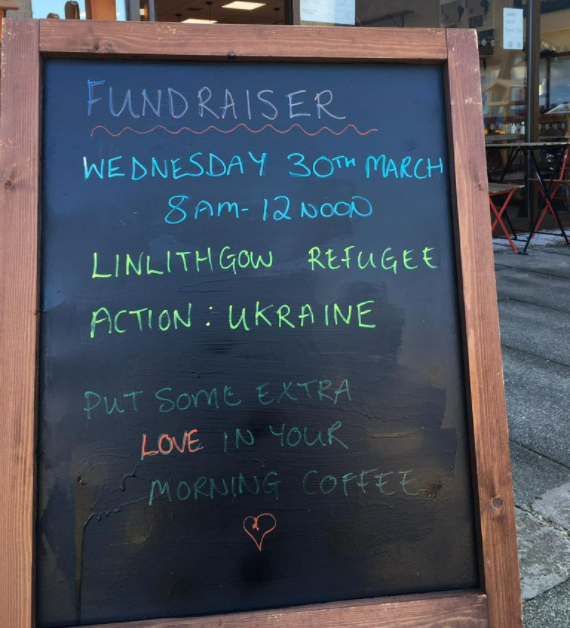 FUNDRAISER
WEDNESDAY 30TH MARCH
8AM-12NOON
LINLITHGOW REFUGEE
ACTION: UKRAINE
PUT SOME EXTRA
LOVE IN YOUR
MORNING COFFEE